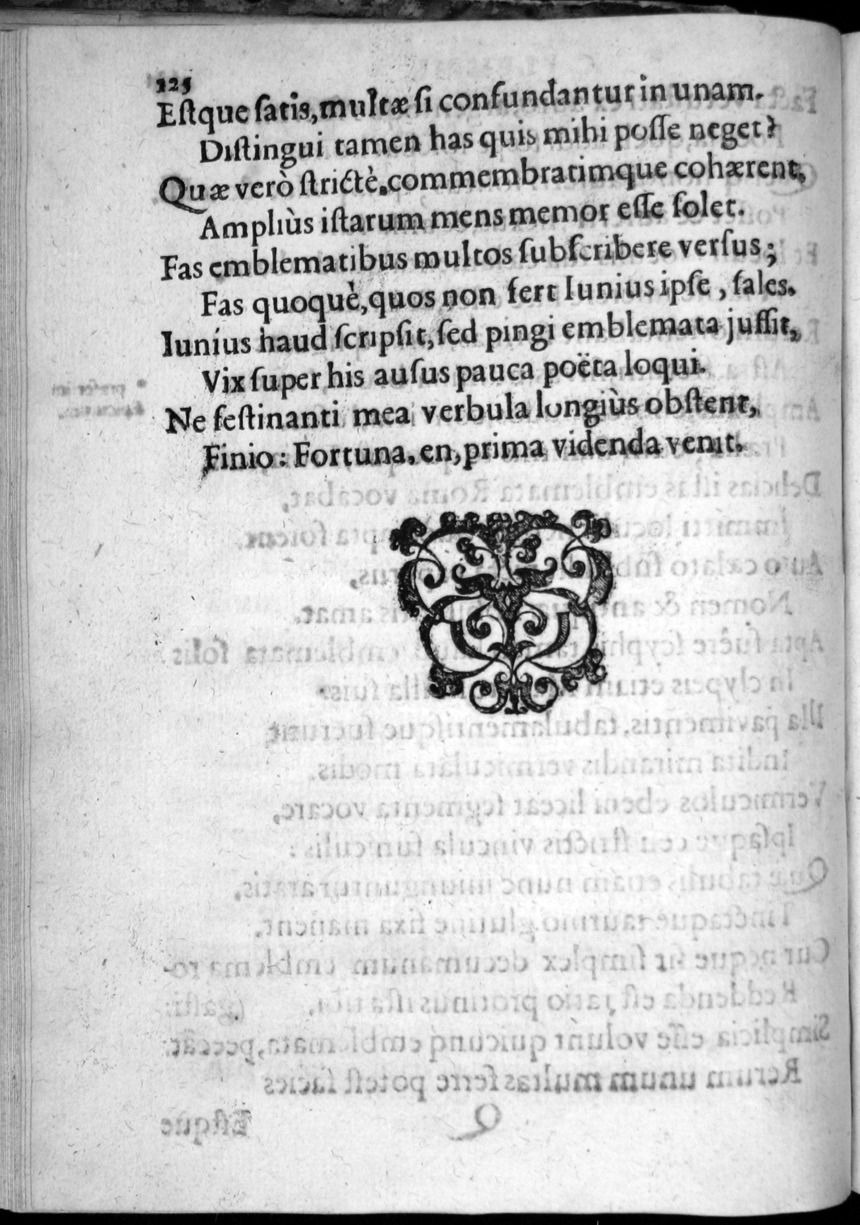 225
Eſtque ſatis, multæ ſi confundantur in unam.
Diſtingui tamen has quis mihi poſſe neget?
Quæ verò ſtrictè, commembratimque cohærent,
Ampliùs iſtarum mens memor eſſe ſolet.
Fas emblematibus multos ſubſcribere verſus;
Fas quoquè, quos non fert Iunius ipſe, ſales.
Iunius haud ſcripſit, ſed pingi emblemata juſſit,
Vix ſuper his auſus pauca poëta loqui.
Ne feſtinanti mea verbula longiùs obſtent,
Finio: Fortuna, en, prima videnda venit.